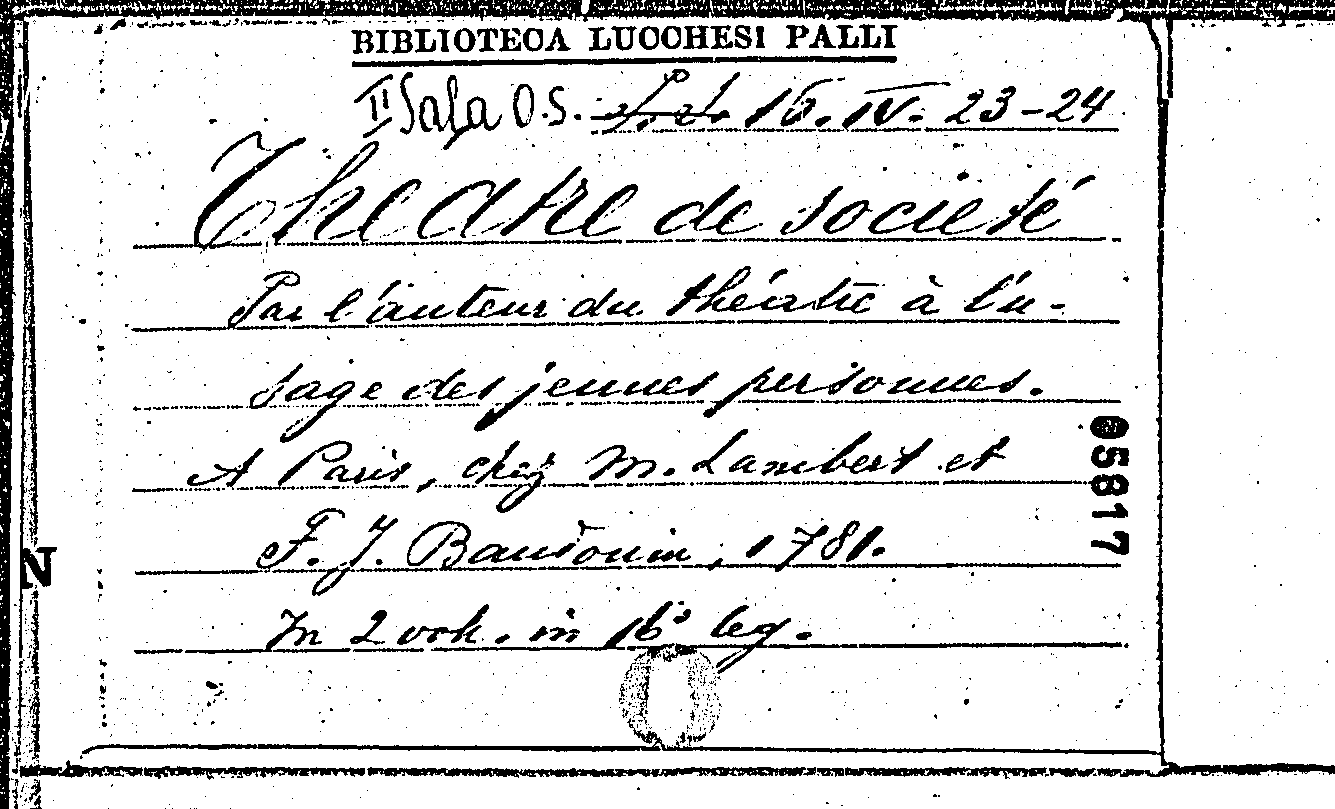 BIBLIOTECA LUCCHESI PALLI
II Sala O.S. 16. IV. 23-24
Théatre de societé
Par l'auteur du théatre à l'u-
sage des jeunes personnes.
A Paris, chez M. Lambert et
F. J. Baudouin, 1781.
In 2 voll. in 16° leg.
05817
N